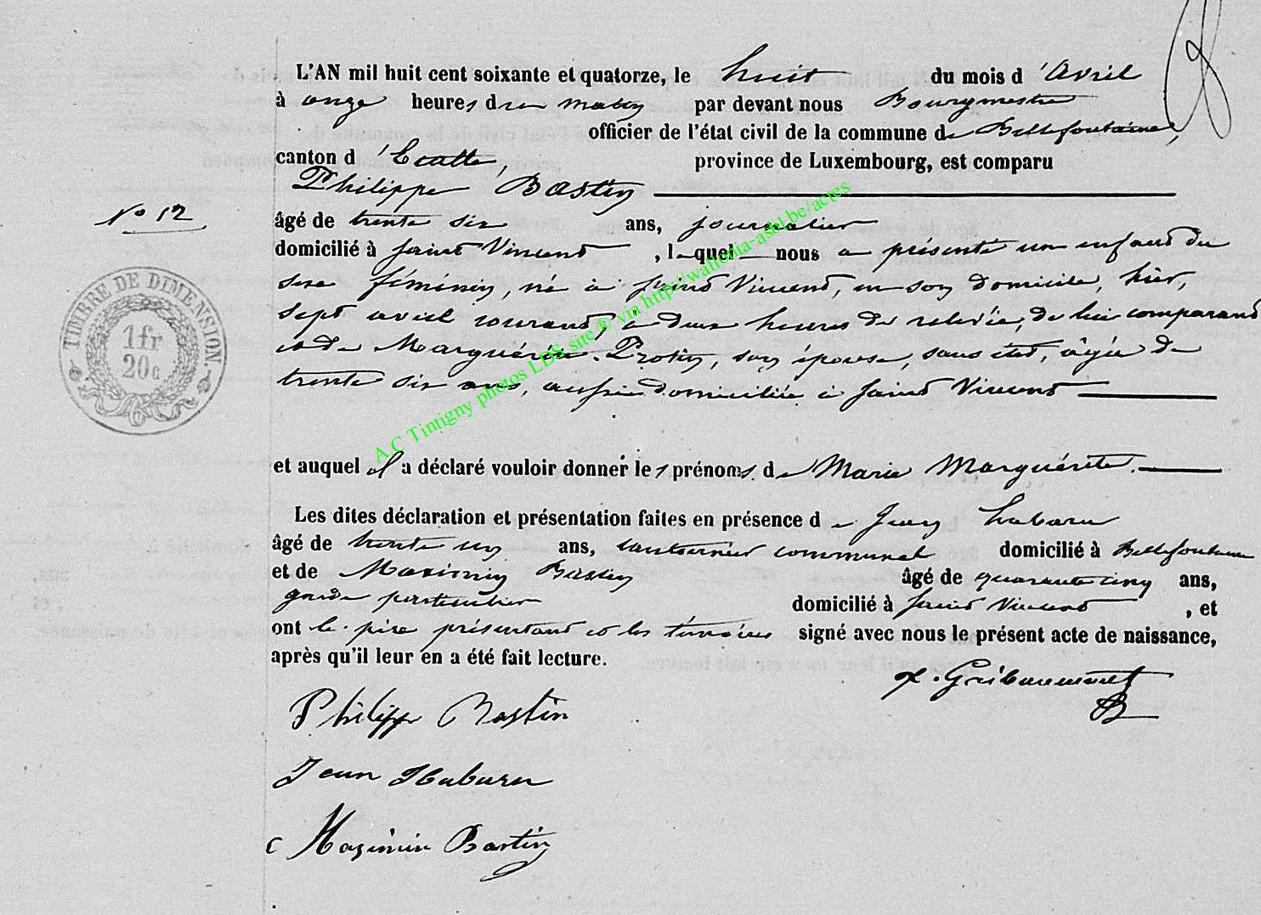 L'AN mil huit cent soixante et quatorze, le huit du mois d'Avril
à onze heures du matin par devant nous Bourgmestre
officier de l'état civil de la commune de Bellefontaine,
canton d'Etalle, province de Luxembourg, est comparu
Philippe Bastin
No 12
âgé de trente six ans, journalier
domicilié à Saint Vincent, lequel nous a présenté un enfant du
sexe féminin, né à Saint Vincent, en son domicile, hier,
sept avril courant, à deux heures de relevée, de lui comparant
et de Marguérite Protin, son épouse, sans état, âgée de
trente six ans, aussi domiciliée à Saint Vincent
TIMBRE DE DIMENSION.
1 fr
20 c
et auquel il a déclaré vouloir donner les prénoms de Marie Marguérite.
Les dites déclaration et présentation faites en présence de Jean Habaru
âgé de trente un ans, cantonnier communal domicilié à Bellefontaine
et de Maximin Bastin âgé de quarante cinq ans,
garde particulier domicilié à Saint Vincent, et
ont le père présentant et les témoins signé avec nous le présent acte de naissance,
après qu'il leur en a été fait lecture.
Gribaumont
Philippe Bastin
Jean Habaru
Maximin Bastin
A.C Tintigny photos LDS site © via http://wallonia-asbl.be/actes